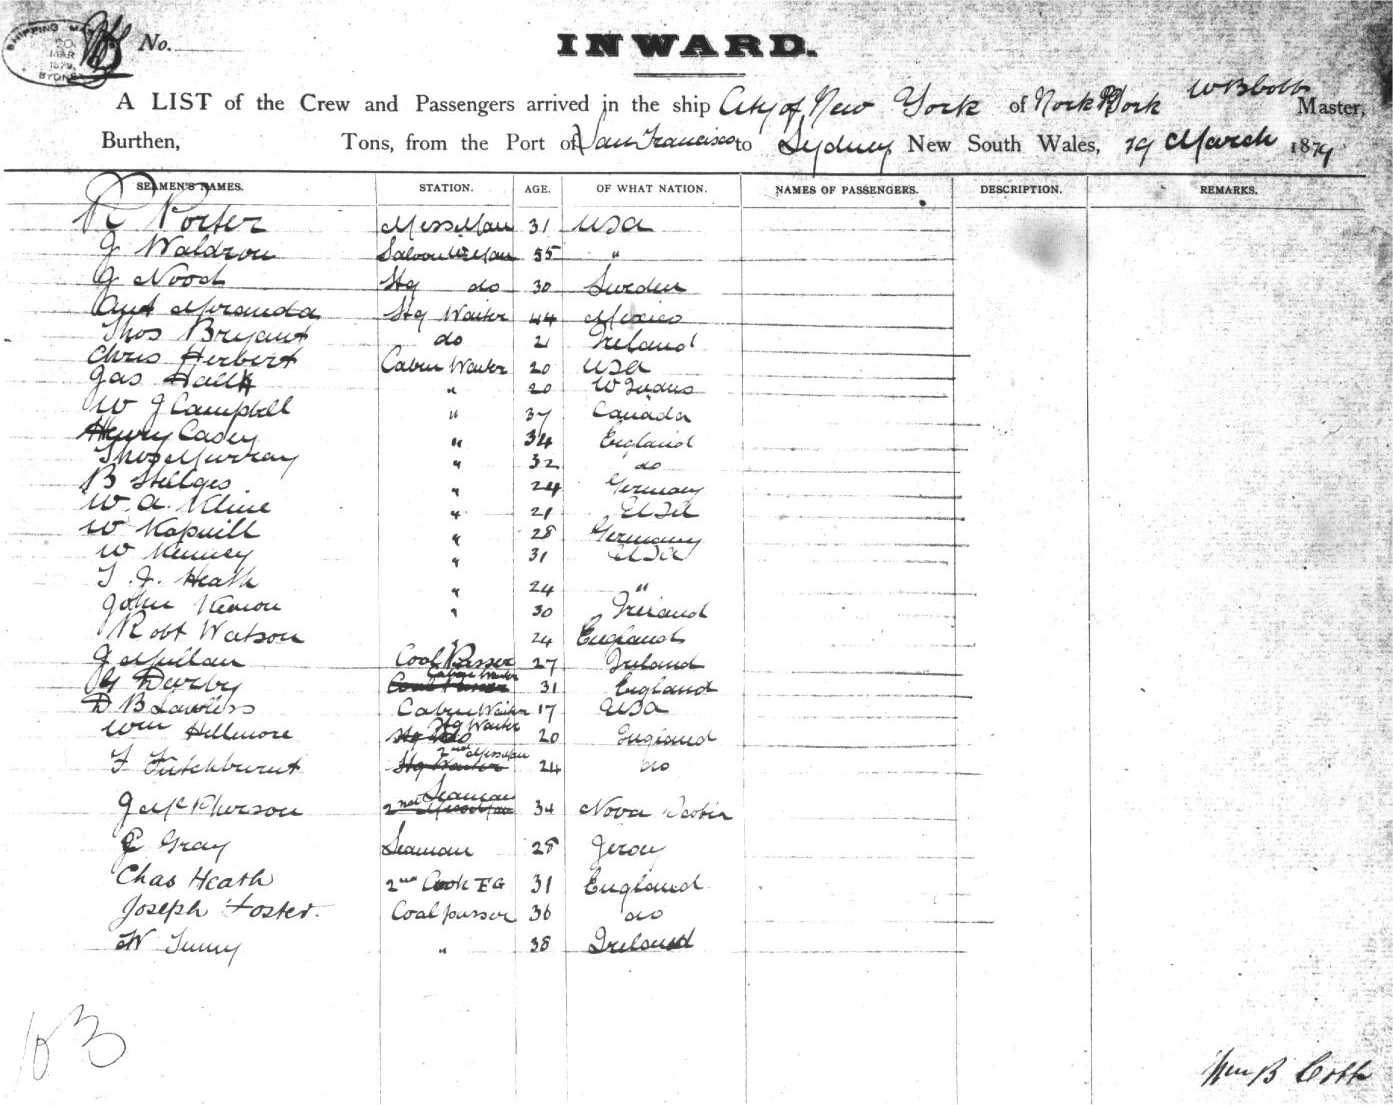 SHIPPING MA
20
MAR
1879
SYDNEY
No.
INWARD.
A LIST of the Crew and Passengers arrived in the ship City of New York of York W B Cobb Master,
Burthen, Tons, from the Port of San Francisco to Sydney New South Wales, 19 March 1879
SEAMEN'S NAMES. STATION. AGE. OF WHAT NATION. NAMES OF PASSENGERS. DESCRIPTION. REMARKS.
R Porter MessMan 31 USA
J Waldron Saloon W Man 55 "
J Nood Stg do 30 Sweden
Ant Miranda Stg Waiter 44 Mexico
Thos Bryant do 21 Ireland
Chris Herbert Cabin Waiter 20 USA
Jas Hall " 20 W Indies
W J Campbell " 37 Canada
Henry Casey " 34 England
Thos Murray " 32 do
B Stelges " 24 Germany
W. A. Kline " 21 USA
W Kapnill " 28 Germany
W Kenney " 31 USA
T. J. Heath " 24 "
John Kenion " 30 Ireland
Robt Watson " 24 England
J Mullan Coal Passer 27 Ireland
Derby Cabin Waiter Coal Passer 31 England
D B Lawless Cabin Waiter 17 USA
Wm Hillmore Stg Waiter Stg do 20 England
F Futchburnt 2nd MessMan Stg Waiter 24 do
J McPherson Seaman 2nd MessMan 34 Nova Scotia
Gray Seaman 28 Jersy
Chas Heath 2nd Cook EG 31 England
Joseph Foster. Coal passer 36 do
W Tunny " 38 Ireland
103
Wm B Cobb